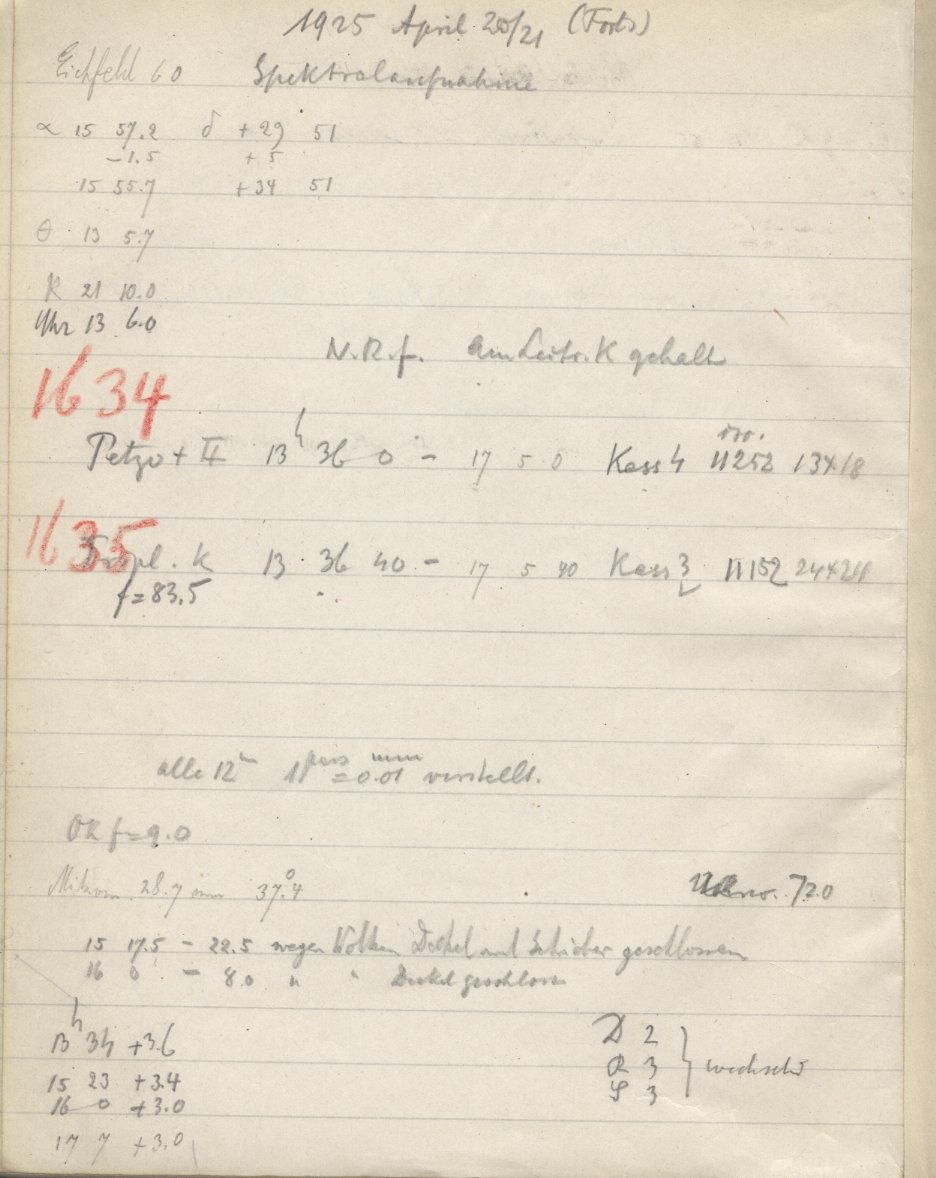 1925 April 20/21 (Forts)
Eichfeld 60 Spektralaufnahme
α 15 57.2 δ +29 51
-1.5 +5
15 55.7 +34 51
θ 13 5.7
R 21 10.0
Uhr 13 6.0
N.R.f. am Leitr. K gehalt
1634
Petzv + II 13h 36 0 - 17 5 0 Kass 4 11252 13×18
1635
Tripl. K 13 36 40 - 17 5 40 Kass 3 11152 24×24
f=83.5
alle 12m 1 pars = 0.01 mm verstellt.
OR f=9.0
Mikrom 28.7 mm 37°.4
720
15 17.5 - 22.5 wegen Wolken Deckel und Schieber geschlossen
16 0 - 8.0 " " Deckel geschlossen
13h 34 +3.6
15 23 +3.4
16 0 +3.0
17 7 +3.0
D 2
R 3 wechselt
S 3